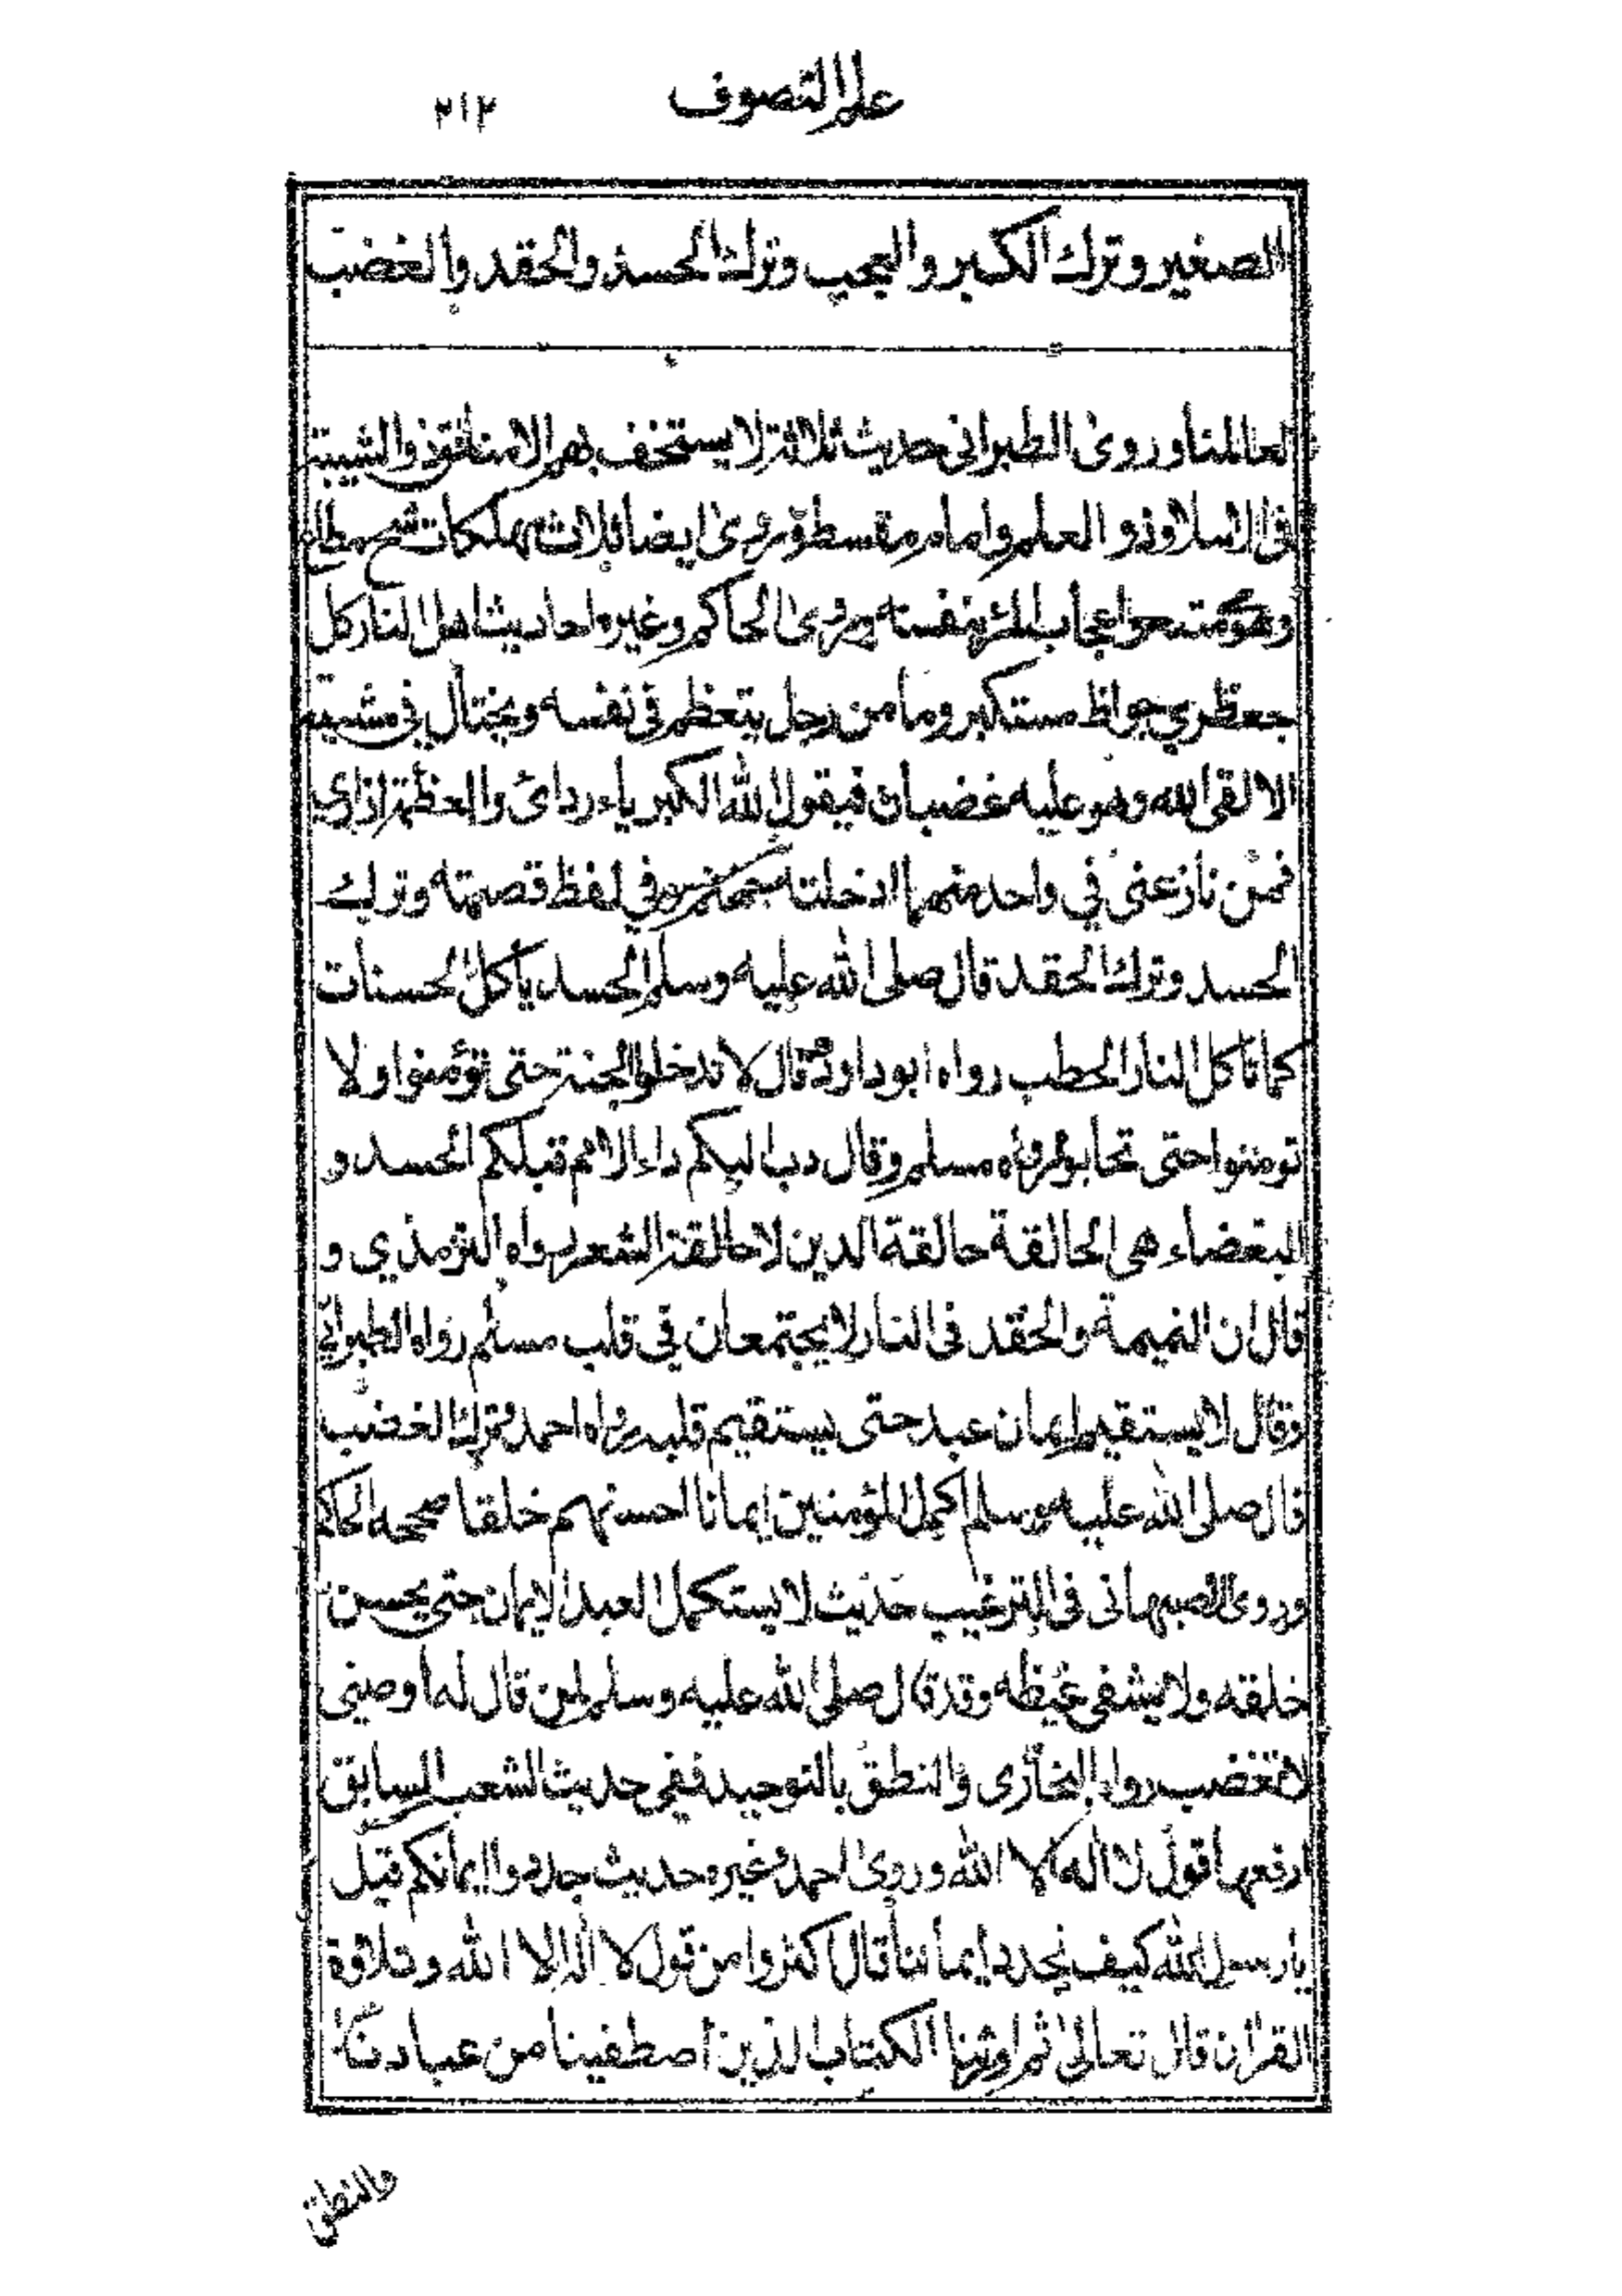 علم التصوف ٢١٢
الصغير وترك الكبر والعجب وترك الحسد والحقد والغضب
لعالمنا وروى الطبرانى حديث ثلاثة لا يستخف بهم الا منافق ذو الشيبة
فى الاسلام وذو العلم وامام مقسط وروى ايضا ثلاث مهلكات شح مطاع
وهوى متبع واعجاب المرء بنفسه وروى الحاكم وغيره احاديث اهل النار كل
جعظري جواظ مستكبر وما من رجل يتعظم في نفسه ويختال في مشيته
الا لقى الله وهو عليه غضبان فيقول الله الكبرياء ردائ والعظمة ازاري
فمن نازعنى في واحد منهما ادخلته جهنم وفي لفظ قصمته وترك
الحسد وترك الحقد قال صلى الله عليه وسلم الحسد يأكل الحسنات
كما تاكل النار الحطب رواه ابو داود وقال لا تدخلوا الجنة حتى تؤمنوا ولا
تومنوا حتى تحابوا رواه مسلم وقال دب اليكم داء الامم قبلكم الحسد و
البغضاء هى الحالقة حالقة الدين لا حالقة الشعر رواه الترمذي و
قال ان النميمة والحقد فى النار لا يجتمعان في قلب مسلم رواه الطبراني
وقال لا يستقيم ايمان عبد حتى يستقيم قلبه رواه احمد وترك الغضب
قال صلى الله عليه وسلم اكمل المؤمنين ايمانا احسنهم خلقا صححه الحاكم
وروى الاصبهانى فى الترغيب حديث لا يستكمل العبد الايمان حتى يحسن
خلقه ولا يشفى غيظه وقد قال صلى الله عليه وسلم لمن قال له اوصنى
لا تغضب رواه البخاري والنطق بالتوحيد ففى حديث الشعب السابق
ارفعها قول لا اله الا الله وروى احمد وغيره حديث جددوا ايمانكم قيل
يا رسول الله كيف نجدد ايماننا قال اكثروا من قول لا اله الا الله وتلاوة
القرآن قال تعالى ثم اورثنا الكتاب الذين اصطفينا من عبادنا
والنطق